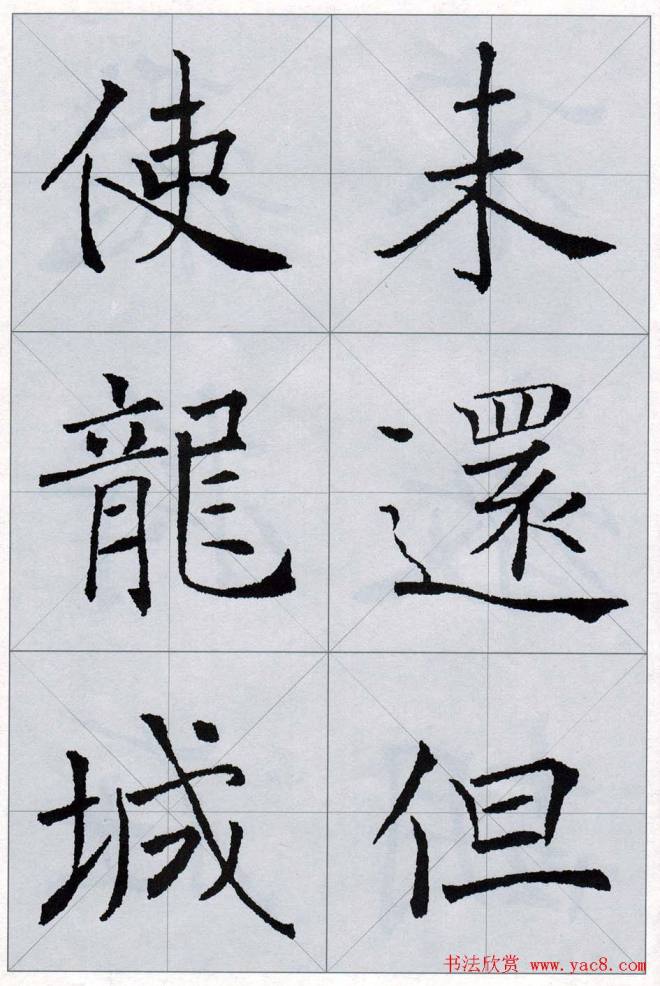 未還但
使龍城
书法欣赏 www.yac8.com